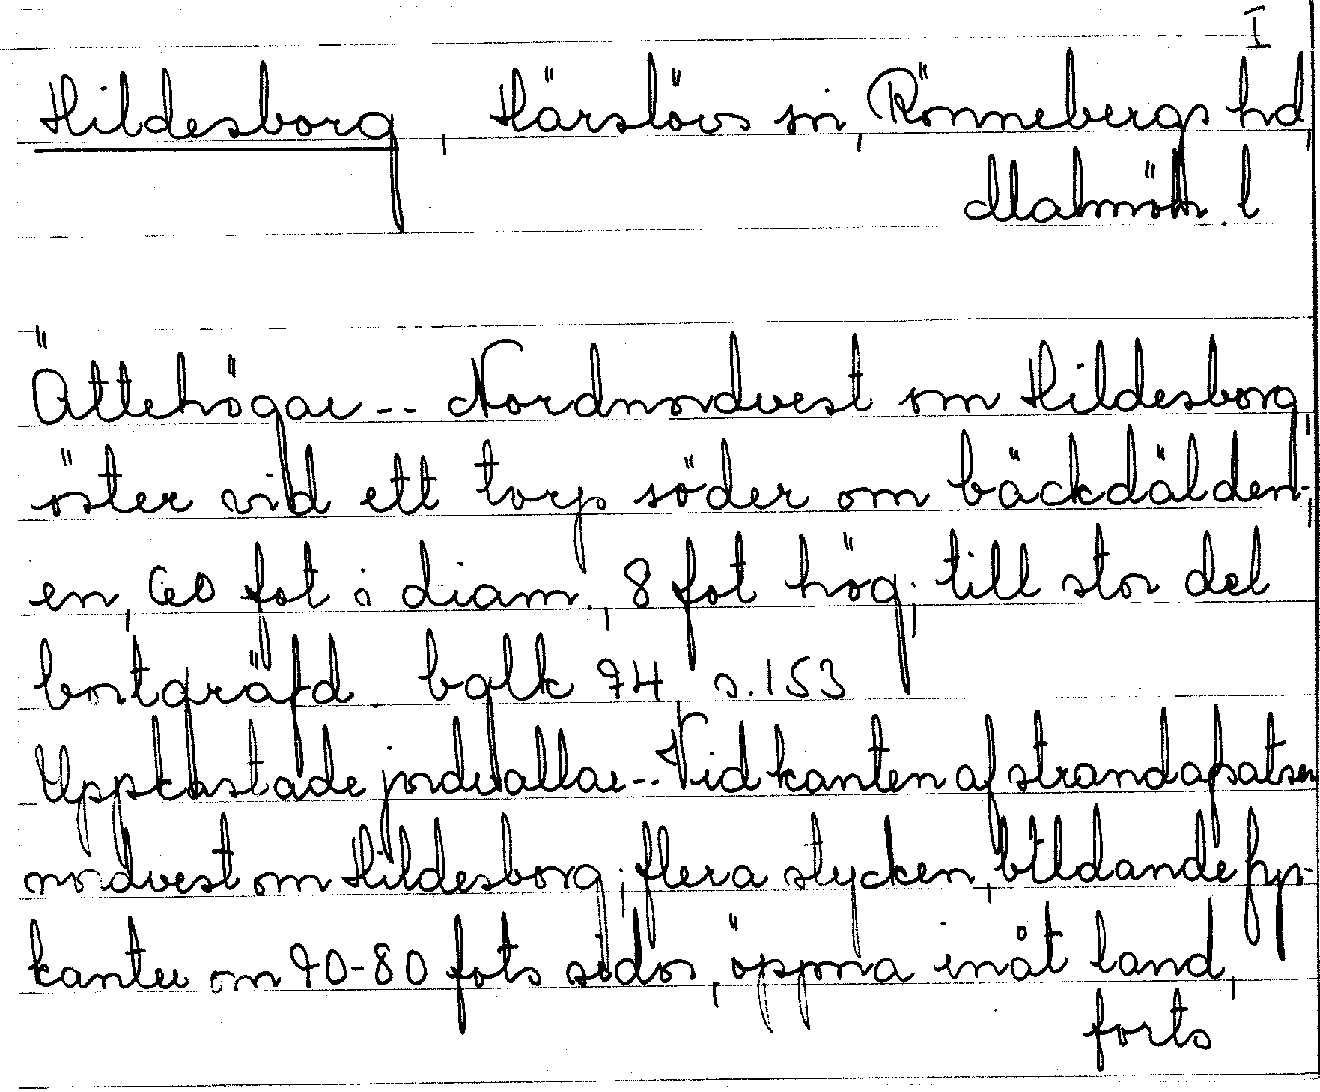 I
Hildesborg, Härslövs sn, Rönnebergs hd,
Malmöh. l
Ättehögar -- Nordnordvest om Hildesborg,
öster vid ett torp söder om bäckdälden;
en, 60 fot i diam., 8 fot hög; till stor del
bortgräfd. bglk 74 s. 153
Uppkastade jordvallar -- Vid kanten af strandafsatsen
nordvest om Hildesborg; flera stycken, bildande fyr-
kanter om 70-80 fots sidor, öppna inåt land,
forts